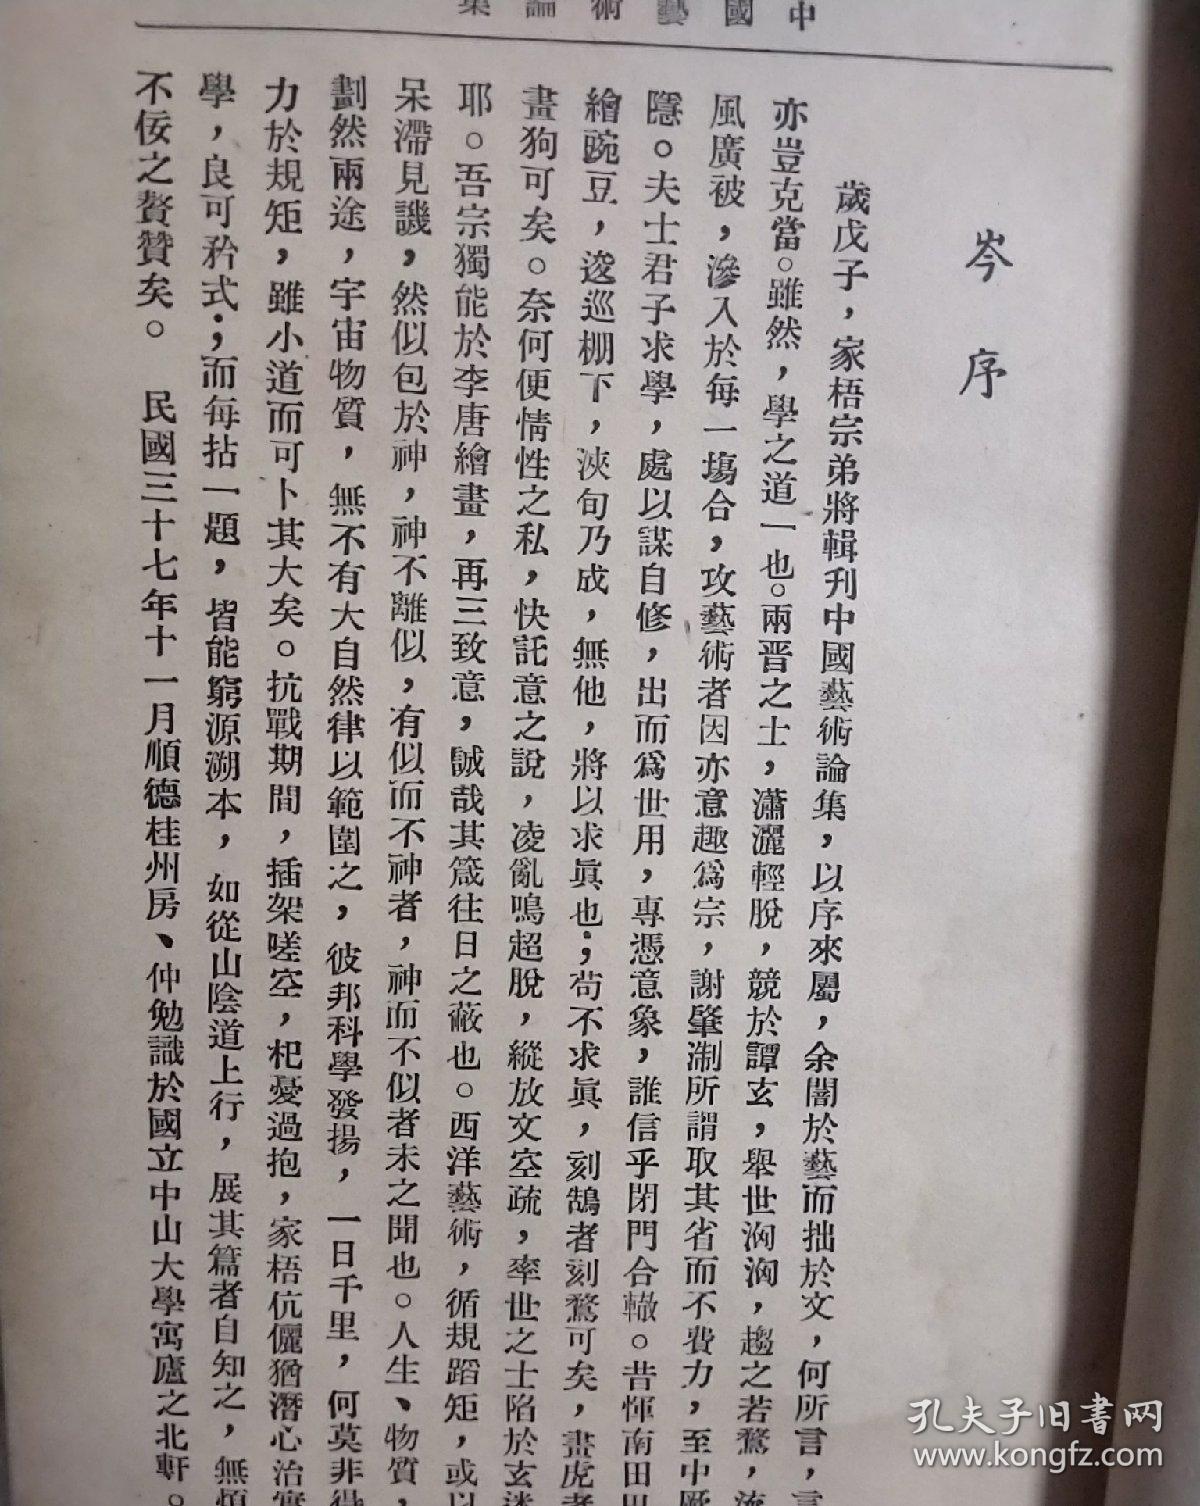 中國藝術論集
岑序
歲戊子，家梧宗弟將輯刊中國藝術論集，以序來屬，余闇於藝而拙於文，何所言，言
亦豈克當。雖然，學之道一也。兩晉之士，瀟灑輕脫，競於譚玄，舉世洶洶，趨之若鶩，流
風廣被，滲入於每一塲合，攻藝術者因亦意趣爲宗，謝肇淛所謂取其省而不費力，至中厭
隱。夫士君子求學，處以謀自修，出而爲世用，專憑意象，誰信乎閉門合轍。昔惲南田田
繪豌豆，逡巡棚下，浹旬乃成，無他，將以求眞也；苟不求眞，刻鵠者刻鶩可矣，畫虎者
畫狗可矣。奈何便情性之私，快託意之說，凌亂鳴超脫，縱放文空疏，率世之士陷於玄迷
耶。吾宗獨能於李唐繪畫，再三致意，誠哉其箴往日之蔽也。西洋藝術，循規蹈矩，或以
呆滯見譏，然似包於神，神不離似，有似而不神者，神而不似者未之聞也。人生、物質，
劃然兩途，宇宙物質，無不有大自然律以範圍之，彼邦科學發揚，一日千里，何莫非得
力於規矩，雖小道而可卜其大矣。抗戰期間，插架嗟空，杞憂過抱，家梧伉儷猶潛心治實
學，良可矜式；而每拈一題，皆能窮源溯本，如從山陰道上行，展其篇者自知之，無煩
不佞之贅贊矣。 民國三十七年十一月順德桂州房、仲勉識於國立中山大學寓廬之北軒。
孔夫子旧書网
www.kongfz.com